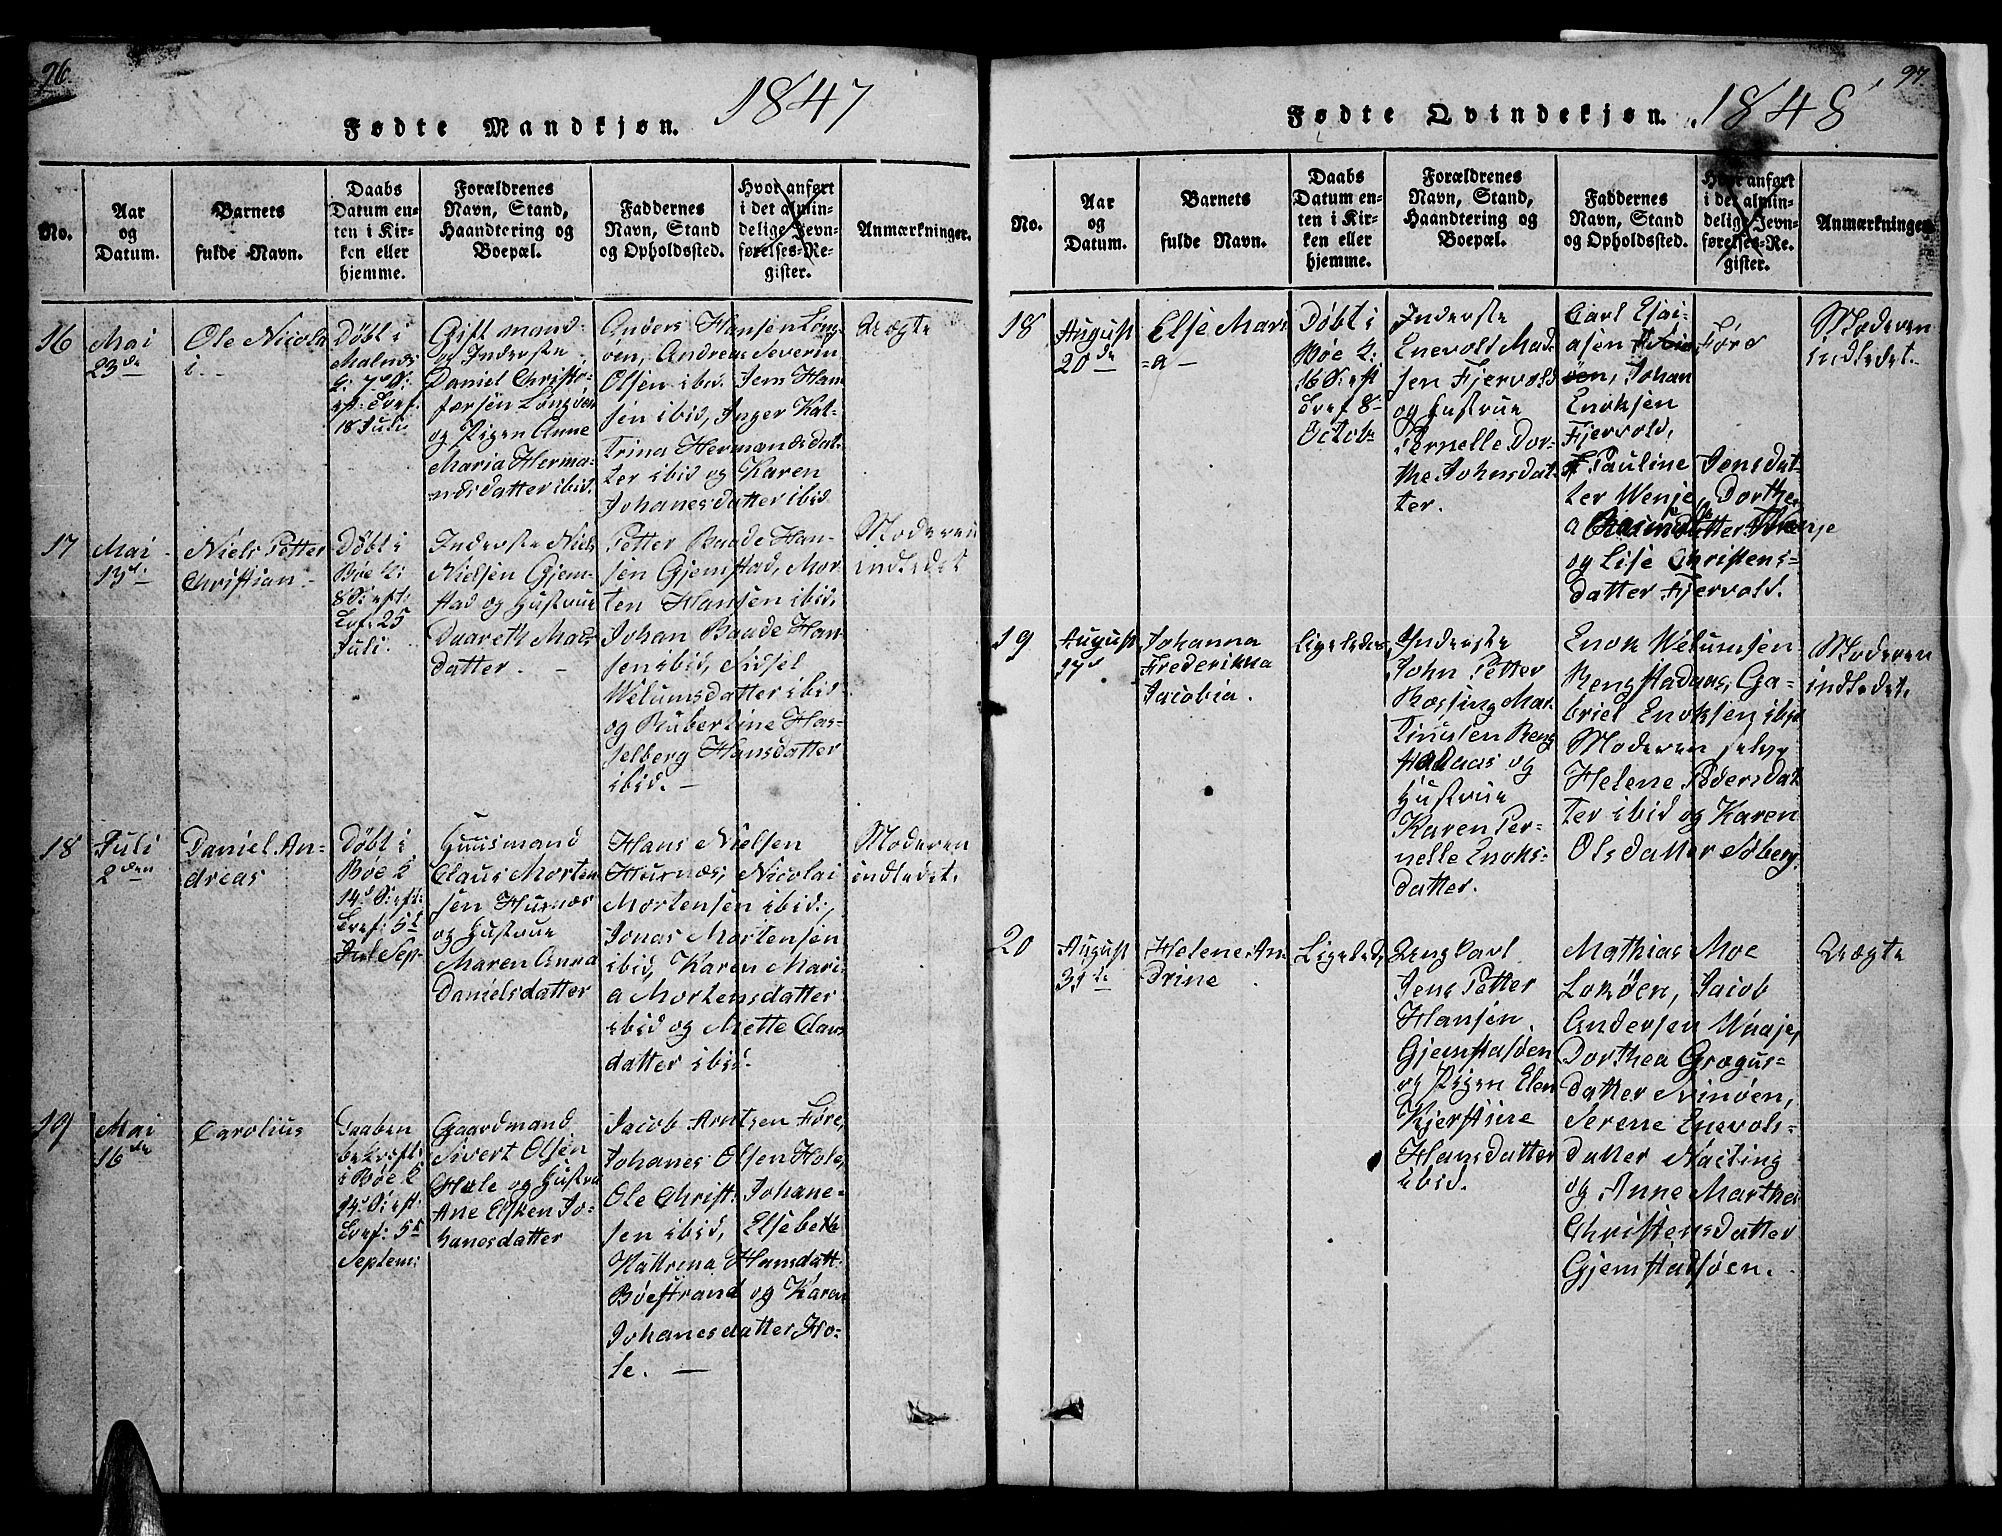 96.
1847
Fødte Mandkjøn.
No.
Aar
og
Datum.
Barnets
fulde Navn.
Daabs
Datum en-
ten i Kir-
ken eller
hjemme.
Forældrenes
Navn, Stand,
Haandtering og
Boepæl.
Faddernes
Navn, Stand
og Opholdssted.
Hvor anført
i det almin-
delige Jevn-
førelses-Re-
gister.
Anmærkninger.
16
Mai
23de
Ole Nicola
i. -
Døbt i
Malnes
K: 7de S:
eft: Tref:
18 Juli
Gift mand
og Inderste
Daniel Christo-
fersen Langøen
og Pigen Anne
Maria Herma-
nusdatter ibid.
Anders Hansen Lang-
øen, Andreas Severin
Olsen ibid. Jem Han
sen ibid, Inger Kat-
trina Hermandsdat-
ter ibid og Karen
Johanesdatter ibid
Uægte
17
Mai
13de
Niels Petter
Christian -
Døbt i
Bøe K:
8 S: eft:
Tref: 25
Juli
Inderste Niels
Nielsen Gjem-
stad og Hustrue
Daareth Mads
datter. -
Petter Baade Han-
sen Gjemstad, Mor-
ten Hansen ibid,
Johan Baade Han-
sen ibid, Sidsel
Welumsdatter ibid
og Rubertine Has-
selberg Hansdatter
ibid. -
Moderen
indledet
18
Juli
2den
Daniel An-
dreas
Døbt i
Bøe K
14de S: eft:
Tref: 5te
Sep-
Huusmand
Claus Morten
sen Hurnæs
og Hustrue
Maren Anna
Danielsdatter
Hans Nielsen
Hurnæs, Nicolai
Mortensen ibid:,
Jonas Mortensen
ibid, Karen Mari-
a Mortensdatter
ibid og Mette Claus
datter ibid.
Moderen
indledet.
19
Mai
16de
Carolius
Daaben
bekræft:
i Bøe K
14de S: eft
Tref: 5te
Septem:
Gaardmand
Sivert Olsen
Hole og Hustru
Ane Elsken Jo-
hanesdatter
Jacob Arntsen Føre,
Johanes Olsen Hole,
Ole Christ: Johane-
sen ibid, Elsebeth
Kattrina Hansdatt:
Bøestrand og Karen
Johanesdatter Ho-
le. -
97.
1848
Fødte Qvindekjøn.
No.
Aar
og
Datum.
Barnets
fulde Navn.
Daabs
Datum en-
ten i Kir-
ken eller
hjemme.
Forældrenes
Navn, Stand,
Haandtering og
Boepæl.
Faddernes
Navn, Stand
og Opholdssted.
Hvor anført
i det almin-
delige Jevn-
førelses-Re-
gister.
Anmærkninger
18
August
20de
Else Mari
=a -
Døbt i
Bøe K:
16 S: eft
Tref 8-
Octob:
Inderste
Enevold Mad
sen Fjervold
og Hustrue
Pernelle Dor-
the Johnsdat-
ter.
Carl Esai-
asen Føre
Johan
Enoksen
Fjervold,
Pauline Jensdat-
ter Wenje, Dorthe-
a datter
og Lise Christens-
datter Fjervold.
Moderen
indledet.
19
August
17de
Johanna
Frederikka
Jacobia.
Ligeledes
Inderste
John Petter
Rossing Mar-
tinusen Reng
stadaas og
Hustrue
Karen Per-
nelle Enoks-
datter.
Enok Welumsen
Rengstadaas, Ga-
briel Enoksen ibid
Moderen selv,
Helene Peersdat
ter ibid og Karen
Olsdatter Søberg,
Moderen
indledet.
20
August
31te
Helene An
drine
Ligeled,
Ungkarl
Jens Petter
Hansen
Gjemstasøen
og Pigen Elen
Kjerstine
Hansdatter
ibid.
Mathias Moe
Lokøen, Jacob
Andersen Waaje,
Dorthea Gregus-
datter Ninøen,
Serene Enevols-
datter
og Anne Marthe
Christensdatter
Gjemstadsøen.
Uægte